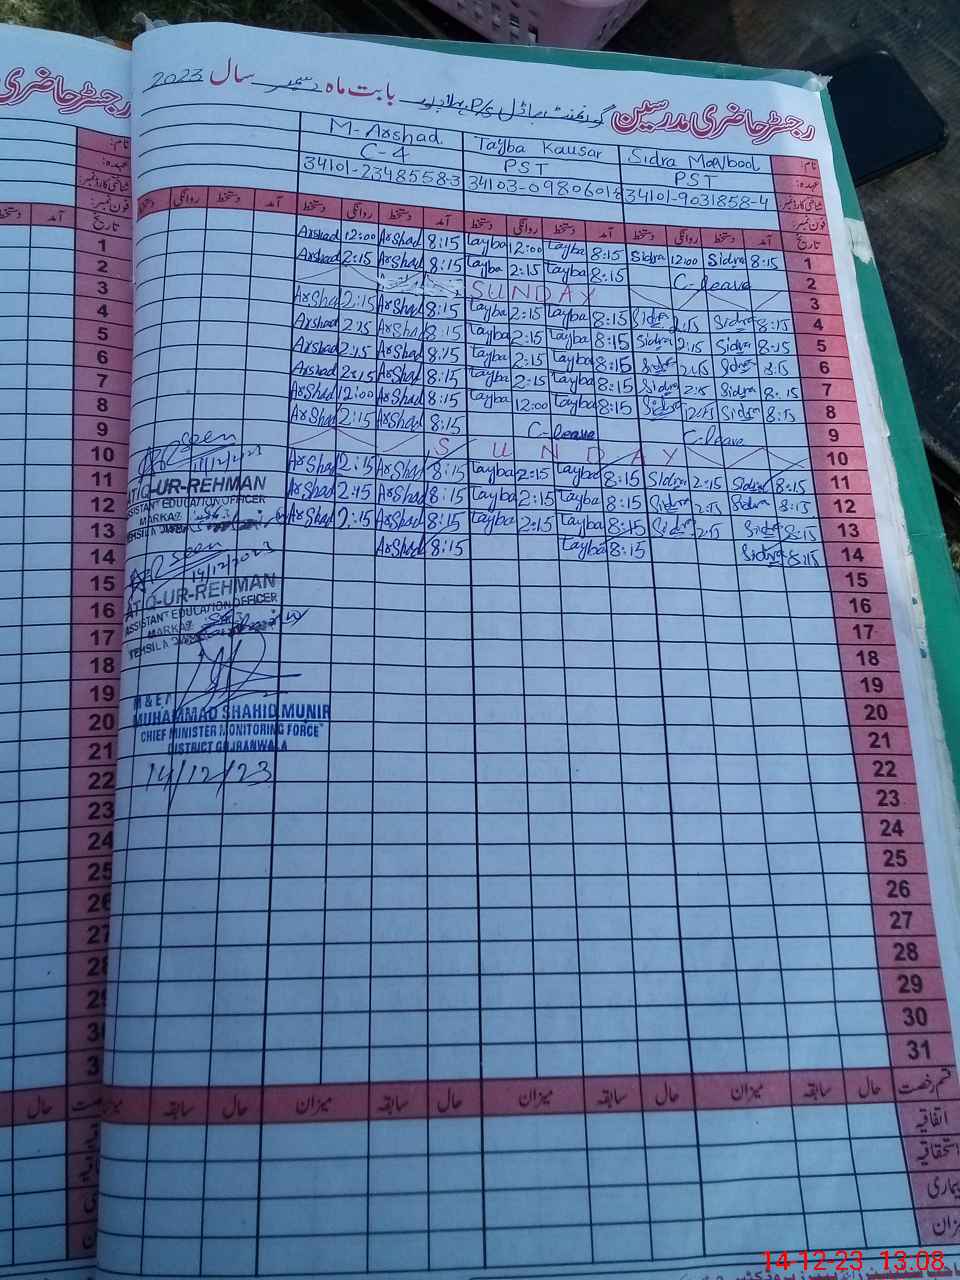 رجسٹر حاضری مدرسین گورنمنٹ ماڈل P/S بابت ماہ دسمبر سال 2023
رجسٹر حاضری مدرسین
نام: Sidra Maqbool Tayba Kausar M-Arshad
عہدہ: PST PST C-4
شناختی کارڈ نمبر: 34101-9031858-4 34103-0980601-8 34101-2348558-3
فون نمبر:
تاریخ آمد دستخط روانگی دستخط آمد دستخط روانگی دستخط آمد دستخط روانگی دستخط آمد دستخط روانگی دستخط
1 8:15 Sidra 12:00 Sidra 8:15 Tayba 12:00 Tayba 8:15 Arshad 12:00 Arshad
2 C-leave 8:15 Tayba 2:15 Tayba 8:15 Arshad 2:15 Arshad
3 SUNDAY
4 8:15 Sidra 2:15 Sidra 8:15 Tayba 2:15 Tayba 8:15 Arshad 2:15 Arshad
5 8:15 Sidra 2:15 Sidra 8:15 Tayba 2:15 Tayba 8:15 Arshad 2:15 Arshad
6 8:15 Sidra 2:15 Sidra 8:15 Tayba 2:15 Tayba 8:15 Arshad 2:15 Arshad
7 8:15 Sidra 2:15 Sidra 8:15 Tayba 2:15 Tayba 8:15 Arshad 2:15 Arshad
8 8:15 Sidra 12:15 Sidra 8:15 Tayba 12:00 Tayba 8:15 Arshad 12:00 Arshad
9 C-leave C-leave 8:15 Arshad 2:15 Arshad
10 SUNDAY
11 8:15 Sidra 2:15 Sidra 8:15 Tayba 2:15 Tayba 8:15 Arshad 2:15 Arshad
12 8:15 Sidra 2:15 Sidra 8:15 Tayba 2:15 Tayba 8:15 Arshad 2:15 Arshad
13 8:15 Sidra 2:15 Sidra 8:15 Tayba 2:15 Tayba 8:15 Arshad 2:15 Arshad
14 8:15 Sidra 8:15 Tayba 8:15 Arshad
15
16
17
18
19
20
21
22
23
24
25
26
27
28
29
30
31
Seen
11/12/2023
ATIQ-UR-REHMAN
ASSISTANT EDUCATION OFFICER
MARKAZ
TEHSIL
Seen
14/12/2023
ATIQ-UR-REHMAN
ASSISTANT EDUCATION OFFICER
MARKAZ
TEHSIL
M & EA
MUHAMMAD SHAHID MUNIR
CHIEF MINISTER MONITORING FORCE
DISTRICT GUJRANWALA
14/12/23
قسم رخصت حال سابقہ میزان حال سابقہ میزان حال سابقہ
اتفاقیہ
استحقاقیہ
بیماری
میزان
14-12-23 13:08